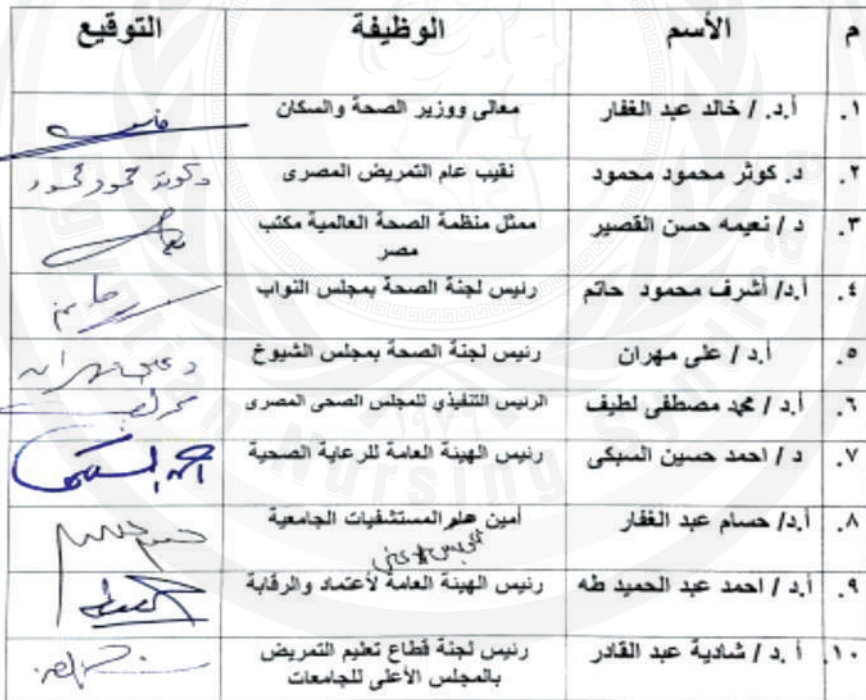 م الأسم الوظيفة التوقيع
١. أ.د. / خالد عبد الغفار معالى ووزير الصحة والسكان
٢. د. كوثر محمود محمود نقيب عام التمريض المصرى دكوثر محمود محمود
٣. د / نعيمه حسن القصير ممثل منظمة الصحة العالمية مكتب
مصر
٤. أ.د/ أشرف محمود حاتم رئيس لجنة الصحة بمجلس النواب
٥. أ.د / على مهران رئيس لجنة الصحة بمجلس الشيوخ د على مهران
٦. أ.د / محمد مصطفى لطيف الرئيس التنفيذي للمجلس الصحى المصرى
٧. د / احمد حسين السبكى رئيس الهيئة العامة للرعاية الصحية
٨. أ.د/ حسام عبد الغفار أمين المستشفيات الجامعية
٩. أ.د / احمد عبد الحميد طه رئيس الهيئة العامة لأعتماد والرقابة
١٠. أ.د / شادية عبد القادر رئيس لجنة قطاع تعليم التمريض
بالمجلس الأعلى للجامعات
Egyptian Nursing Syndicate